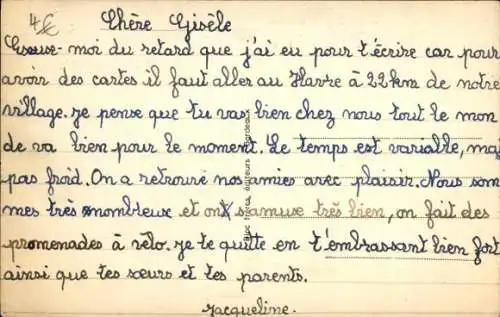 4€
Chère Gisèle
Excuse-moi du retard que j'ai eu pour t'écrire car pour
avoir des cartes il faut aller au Havre à 22 km de notre
village. je pense que tu vas bien chez nous tout le mon
de va bien pour le moment. Le temps est variable, mai
pas froid. On a retrouvé nos amies avec plaisir. Nous som
mes très nombleux et on s'amuse très bien, on fait des
promenades à vélo. je te quitte en t'embrassant bien fort
ainsi que tes sœurs et tes parents.
Jacqueline.